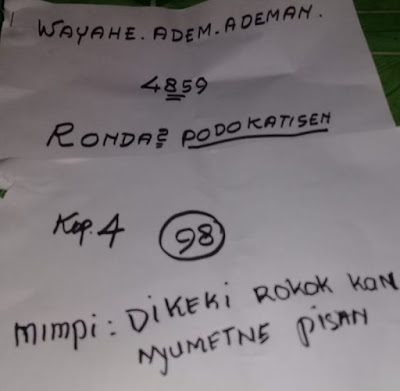 WAYAHE. ADEM. ADEMAN.
4859
RONDA2 PODO KATISEN
Kep. 4 98
mimpi: DIKEKI ROKOK KON
NYUMETNE PISAN